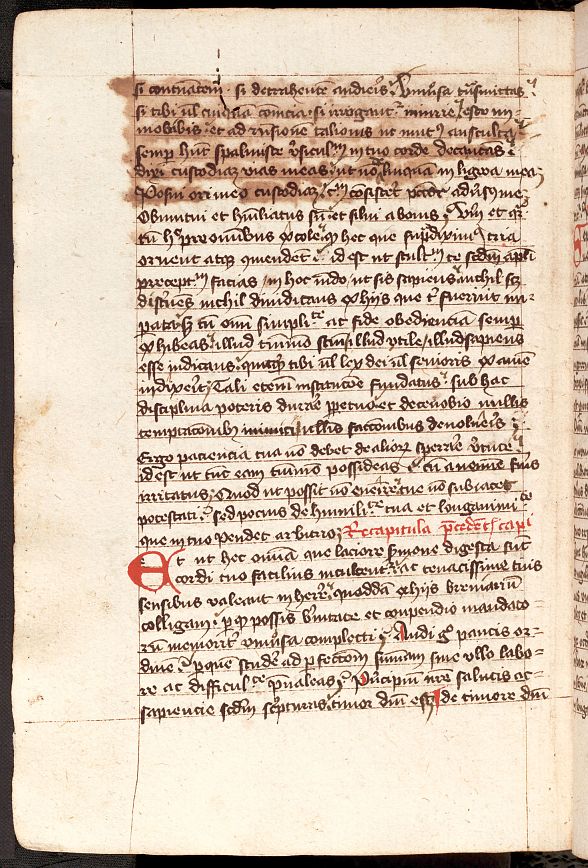 si contumeliam · si detrahentem audieris · Vniuersa transmittas ·
si tibi vel cuiquam conuicia · si irrogantur iniurie · esto im
mobilis · et ad responsionem talionis ut mutus auscultas
semper hunc psalmiste versiculum in tuo corde decantans ·
dixi custodiam vias meas · ut non delinquam in ligwa mea
Posui ori meo custodiam · cum consisteret peccator aduersum me ·
Obmutui et humiliatus sum · et silui a bonis · Verum et quar
tum hoc pre omnibus excole · quod hec que supra diximus tria
ornent atque commendent · id est ut stultum te secundum apostoli
preceptum facias in hoc mundo · ut sis sapiens · nichil scilicet
discernens nichil diiudicans ex hijs que tibi fuerint im-
perata sed cum omni simplicitate ac fide obedienciam semper
exhibeas · illud tantummodo sanctum illud vtile · illud sapiens
esse iudicans · quitquid tibi vel lex dei vel senioris examen
indixerit · Tali etenim institucione fundatus · sub hac
disciplina poteris durare perpetuo · et de cenobio nullis
temptacionibus inimici nullis faccionibus deuolueris ·
Ergo paciencia tua non debet de aliorum sperare virtute ·
id est ut tunc eam tantummodo possideas · cum a nemine fueris
irritatus · Quod ut possit non euenire tue non subiacet
potestati · sed pocius de humilitate tua et longanimitate
que in tuo pendet arbitrio · Recapitula precedentis capi
Et ut hec omnia que laciore sermone digesta sunt
cordi tuo facilius inculcentur · ac tenacissime tuis
sensibus valeant inherere · quoddam ex hijs breuiarium
colligam · per quod possis breuitate et conpendio mandato-
rum memoriter vniuersa complecti · Audi ergo paucis or-
dinem · per quem scandere ad perfectionem summam sine vllo labo-
re ac difficultate preualeas · Principium nostre salutis ac
sapiencie secundum scripturas · timor domini est · de timore domini